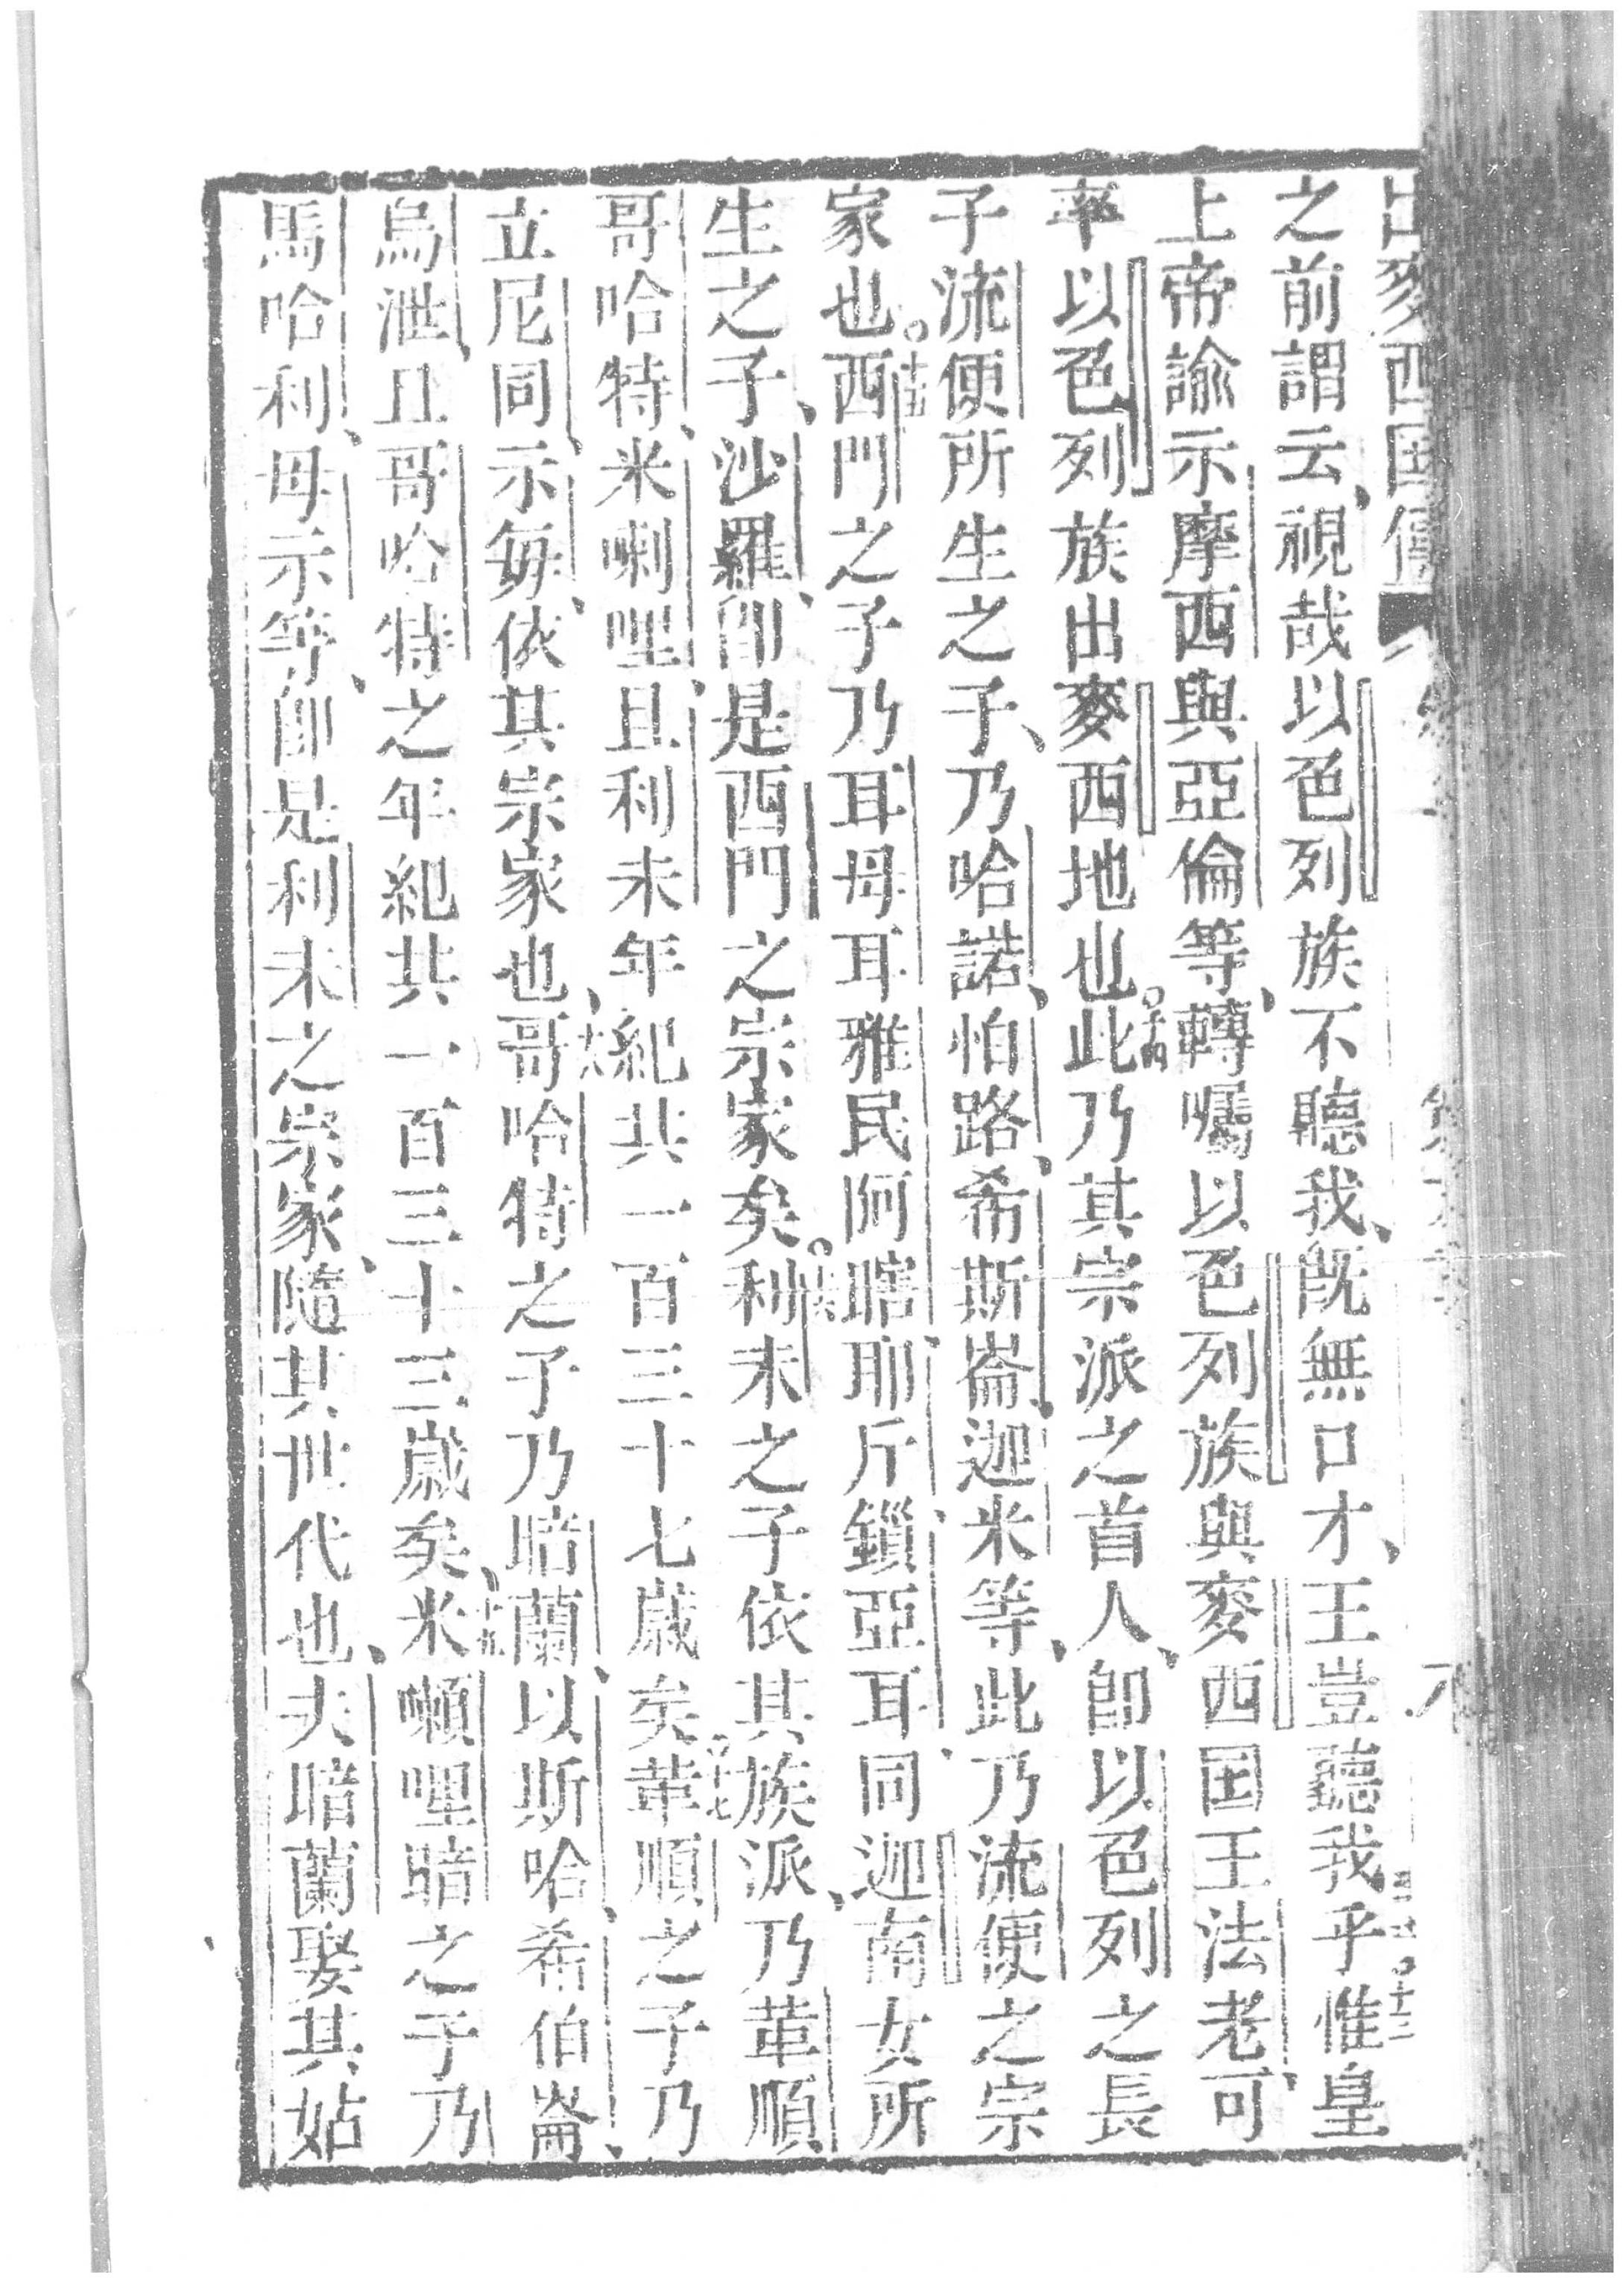 出麥西国傳
之前謂云、視哉以色列族不聽我、既無口才、王豈聽我乎。十三惟皇
上帝諭示摩西與亞倫等、轉囑以色列族與麥西国王法老、可
率以色列族出麥西地也。十四此乃其宗派之首人、卽以色列之長
子流便所生之子、乃哈諾、怕路、希斯崙、迦米等、此乃流便之宗
家也。十五西門之子乃耳母耳雅民阿瞎、耶斤、鎖亞耳、同迦南女所
生之子、沙羅、卽是西門之宗家矣。十六利未之子依其族派、乃革順、
哥哈特、米喇哩、且利未年紀共一百三十七歲矣。十七革順之子乃
立尼同、示每、依其宗家也、十八哥哈特之子乃暗蘭、以斯哈、希伯崙、
烏泄、且哥哈特之年紀共一百三十三歲矣、十九米囒哩暗之子乃
馬哈利、母示等、卽是利未之宗家、隨其世代也、夫暗蘭娶其姑